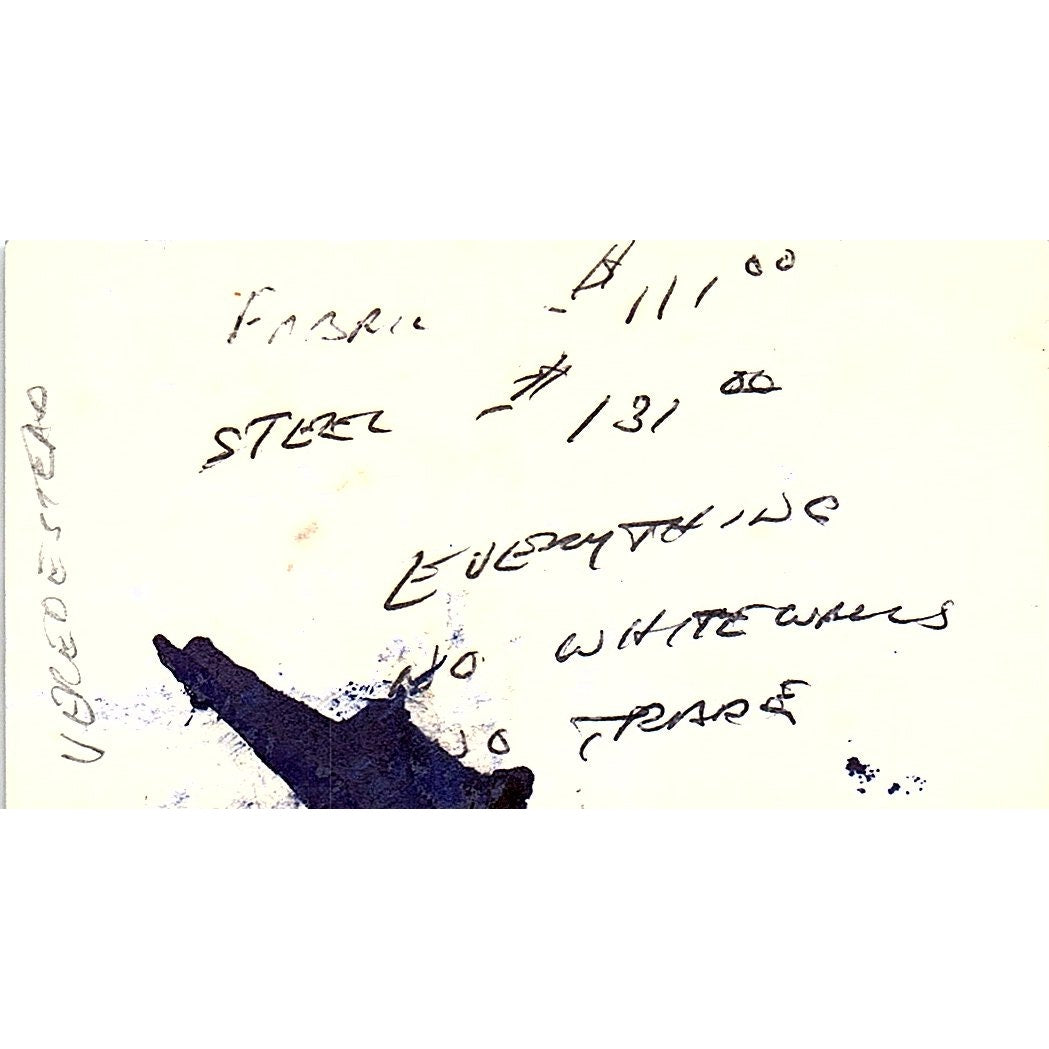 FABRIC - $111.00
STEEL - $131.00
EVERYTHING
NO WHITEWALLS
NO TRADE